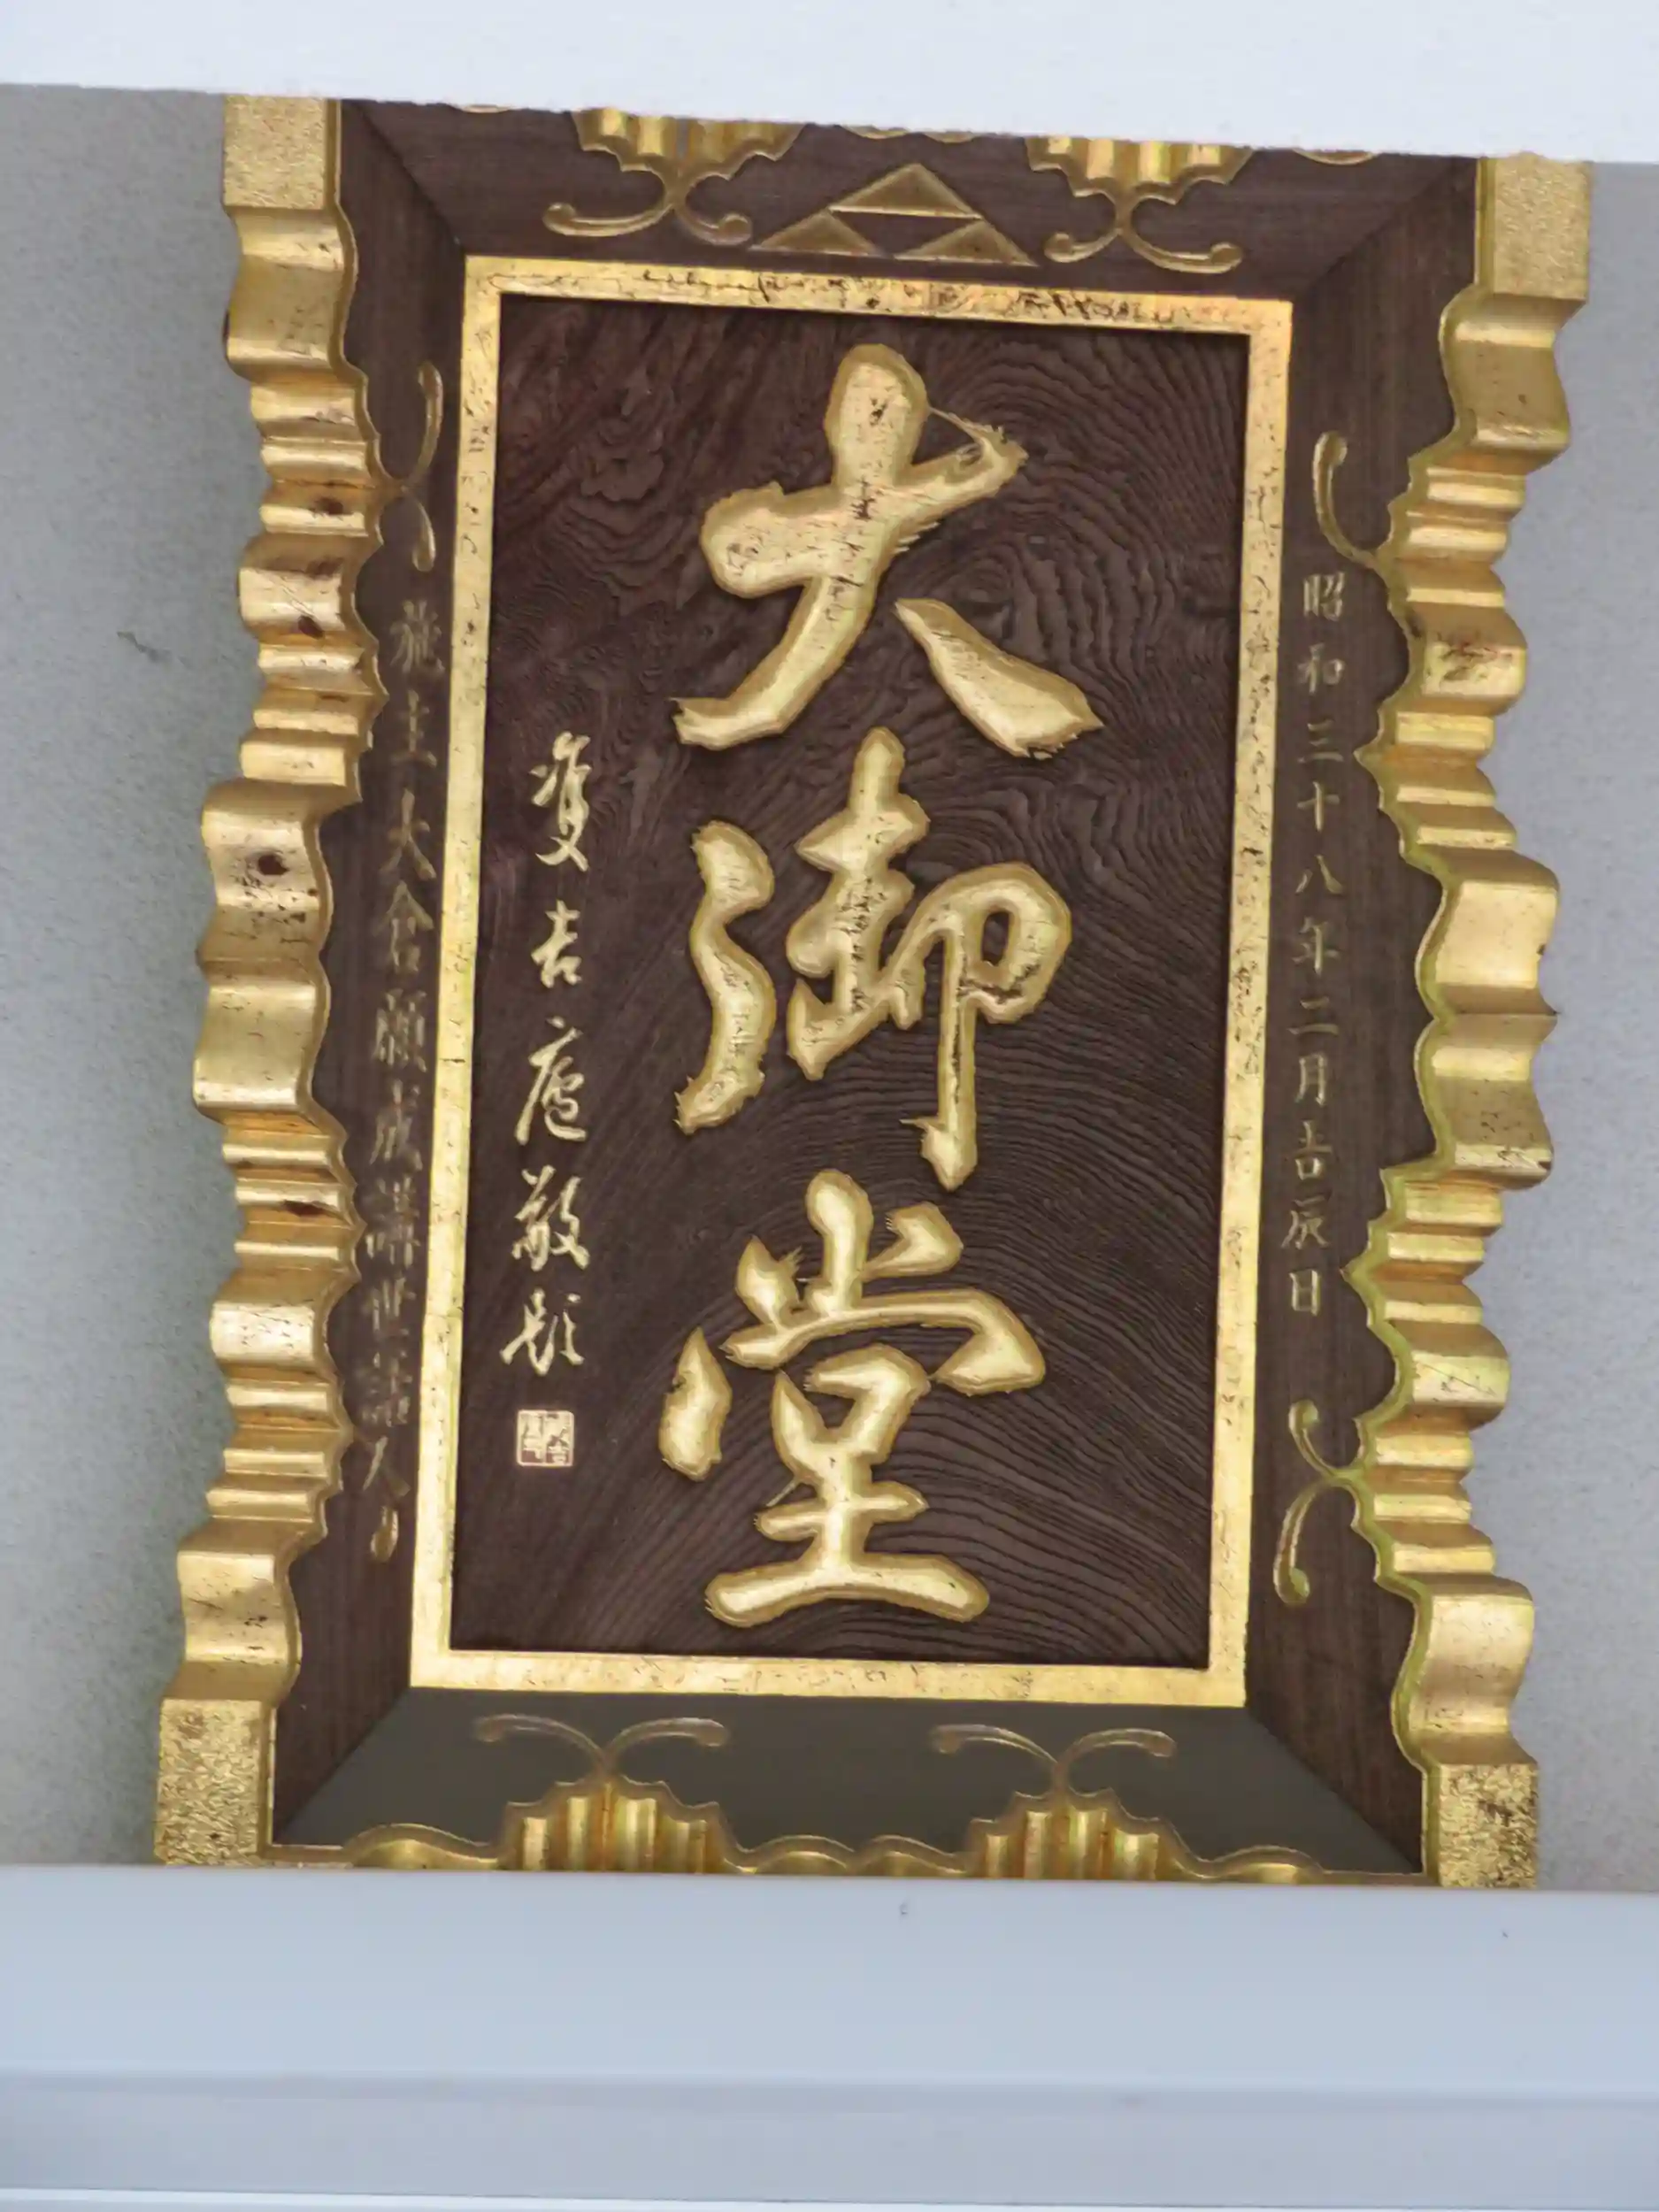 昭和三十八年二月吉辰日
大御堂
双吉廬敬題
施主大倉願成講世話人